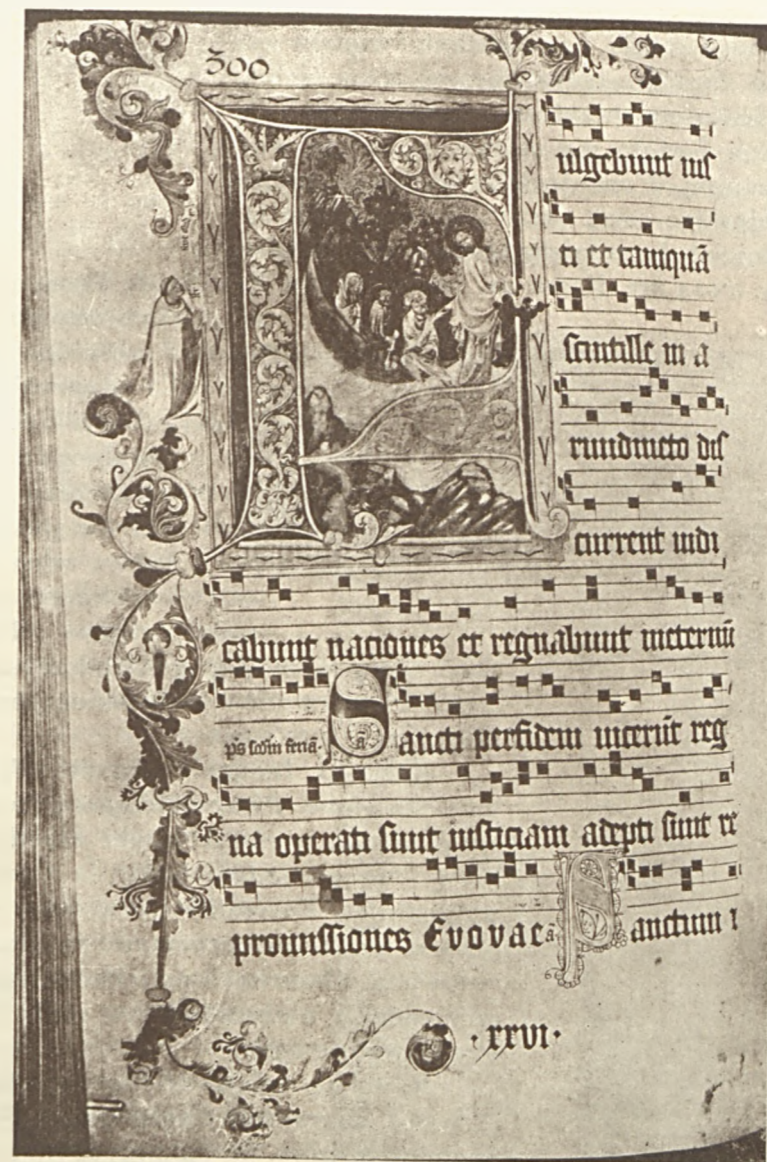 300
ulgebunt ius
ti et tamquā
scintille in a
rundineto dis
current iudi
cabunt naciones et regnabunt ineternū
p̄s scd̄m feriā. Sancti perfidem uicerūt reg
na operati sunt iusticiam adepti sunt re
promissiones Evovae ā Panctum
.xxvi.